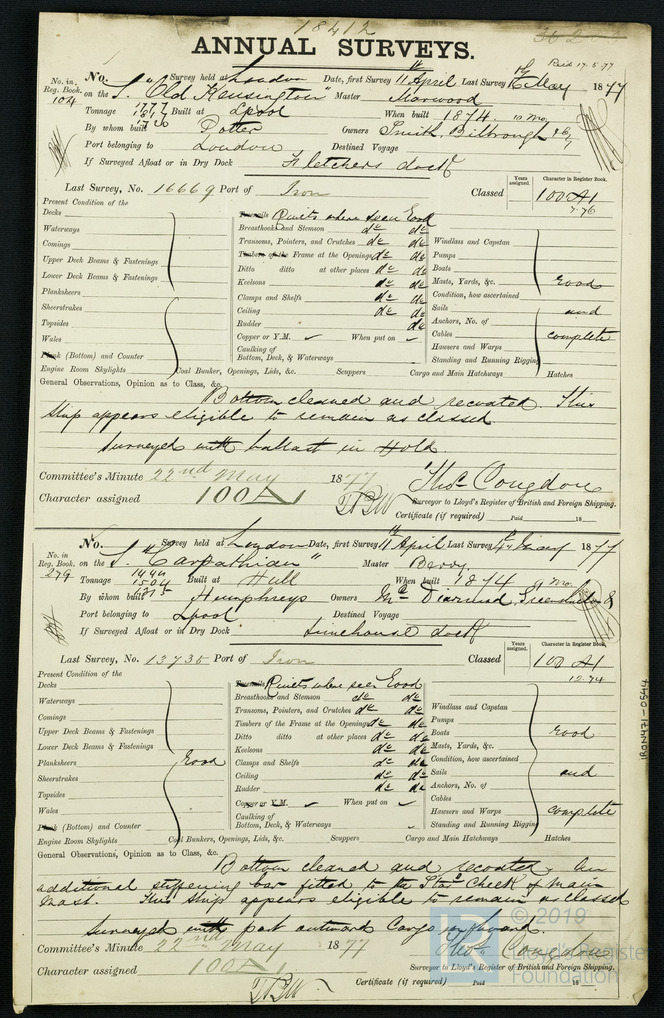 18412
ANNUAL SURVEYS.
Paid 17.5.77
No. in Reg. Book. 104
No. Survey held at London Date, first Survey 11th April Last Survey 16th May 1877
on the S. "Old Kensington" Master Marwood
Tonnage 1777 1817 1720 Built at Lpool When built 1874. 10 Mo.
By whom built Potter Owners Smith, Bilbrough & Co
Port belonging to London Destined Voyage
If Surveyed Afloat or in Dry Dock Fletchers dock
Last Survey, No. 16669 Port of Iron Classed Years assigned. Character in Register Book. 100 A1
7.76
Present Condition of the
Decks
Waterways
Comings
Upper Deck Beams & Fastenings
Lower Deck Beams & Fastenings
Planksheers
Sheerstrakes
Topsides
Wales
Plank (Bottom) and Counter
Engine Room Skylights
Treenails Rivets where seen Good
Breasthooks and Stemson do do
Transoms, Pointers, and Crutches do do
Timbers of the Frame at the Openings do do
Ditto ditto at other places do do
Keelsons do do
Clamps and Shelfs do do
Ceiling do do
Rudder do
Copper or Y.M. When put on
Caulking of Bottom, Deck, & Waterways
Coal Bunker, Openings, Lids, &c. Scuppers Cargo and Main Hatchways
Windlass and Capstan
Pumps
Boats
Masts, Yards, &c. Good
Condition, how ascertained
Sails and
Anchors, No. of
Cables complete
Hawsers and Warps
Standing and Running Rigging
Hatches
General Observations, Opinion as to Class, &c.
Bottom cleaned and recoated. This
Ship appears eligible to remain as classed.
Surveyed with ballast in Hold.
Committee's Minute 22nd May 1877 Thos. Congdon
Character assigned 100A1 Surveyor to Lloyd's Register of British and Foreign Shipping.
Certificate (if required) Paid 18
No. in Reg. Book. 279
No. Survey held at London Date, first Survey 11th April Last Survey 1877
on the S. "Carpathian" Master Berry
Tonnage 1444 1504 Built at Hull When built 1874 9 Mo.
By whom built Humphreys Owners McDiarmid, Greenshields &
Port belonging to Lpool Destined Voyage
If Surveyed Afloat or in Dry Dock Limehouse dock
Last Survey, No. 13735 Port of Iron Classed Years assigned. Character in Register Book. 100 A1
12.74
Present Condition of the
Decks
Waterways
Comings
Upper Deck Beams & Fastenings
Lower Deck Beams & Fastenings
Planksheers Good
Sheerstrakes
Topsides
Wales
Plank (Bottom) and Counter
Engine Room Skylights
Treenails Rivets where seen Good
Breasthooks and Stemson do do
Transoms, Pointers, and Crutches do do
Timbers of the Frame at the Openings do do
Ditto ditto at other places do do
Keelsons do do
Clamps and Shelfs do do
Ceiling do do
Rudder do do
Copper or Y.M. When put on
Caulking of Bottom, Deck, & Waterways
Coal Bunkers, Openings, Lids, &c. Scuppers Cargo and Main Hatchways
Windlass and Capstan
Pumps
Boats Good
Masts, Yards, &c.
Condition, how ascertained
Sails and
Anchors, No. of
Cables
Hawsers and Warps complete
Standing and Running Rigging
Hatches
General Observations, Opinion as to Class, &c.
Bottom cleaned and recoated. An
additional stiffening bar fitted to the Starb Cheek of main
Mast. This Ship appears eligible to remain as classed
Surveyed with part outward Cargo on board.
Committee's Minute 22nd May 1877 Thos. Congdon
Character assigned 100A1 Surveyor to Lloyd's Register of British and Foreign Shipping.
Certificate (if required) Paid 18
IRON471-0544
© 2019
Lloyd's Register
Foundation